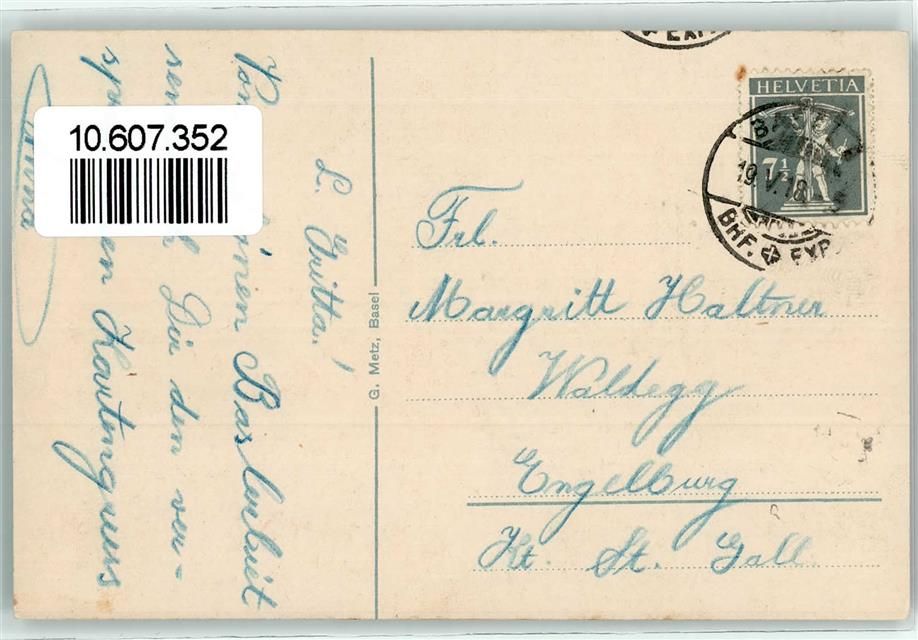 10.607.352
L. Gritta!
Von inen Baslerbiet
sen Dir den ver-
spr en Kartengruss
Anna
G. Metz, Basel
HELVETIA
7½
19.V.18
BHF. EXP
Frl.
Margritt Haltner
Waldegg
Engelburg
Kt. St. Gall.